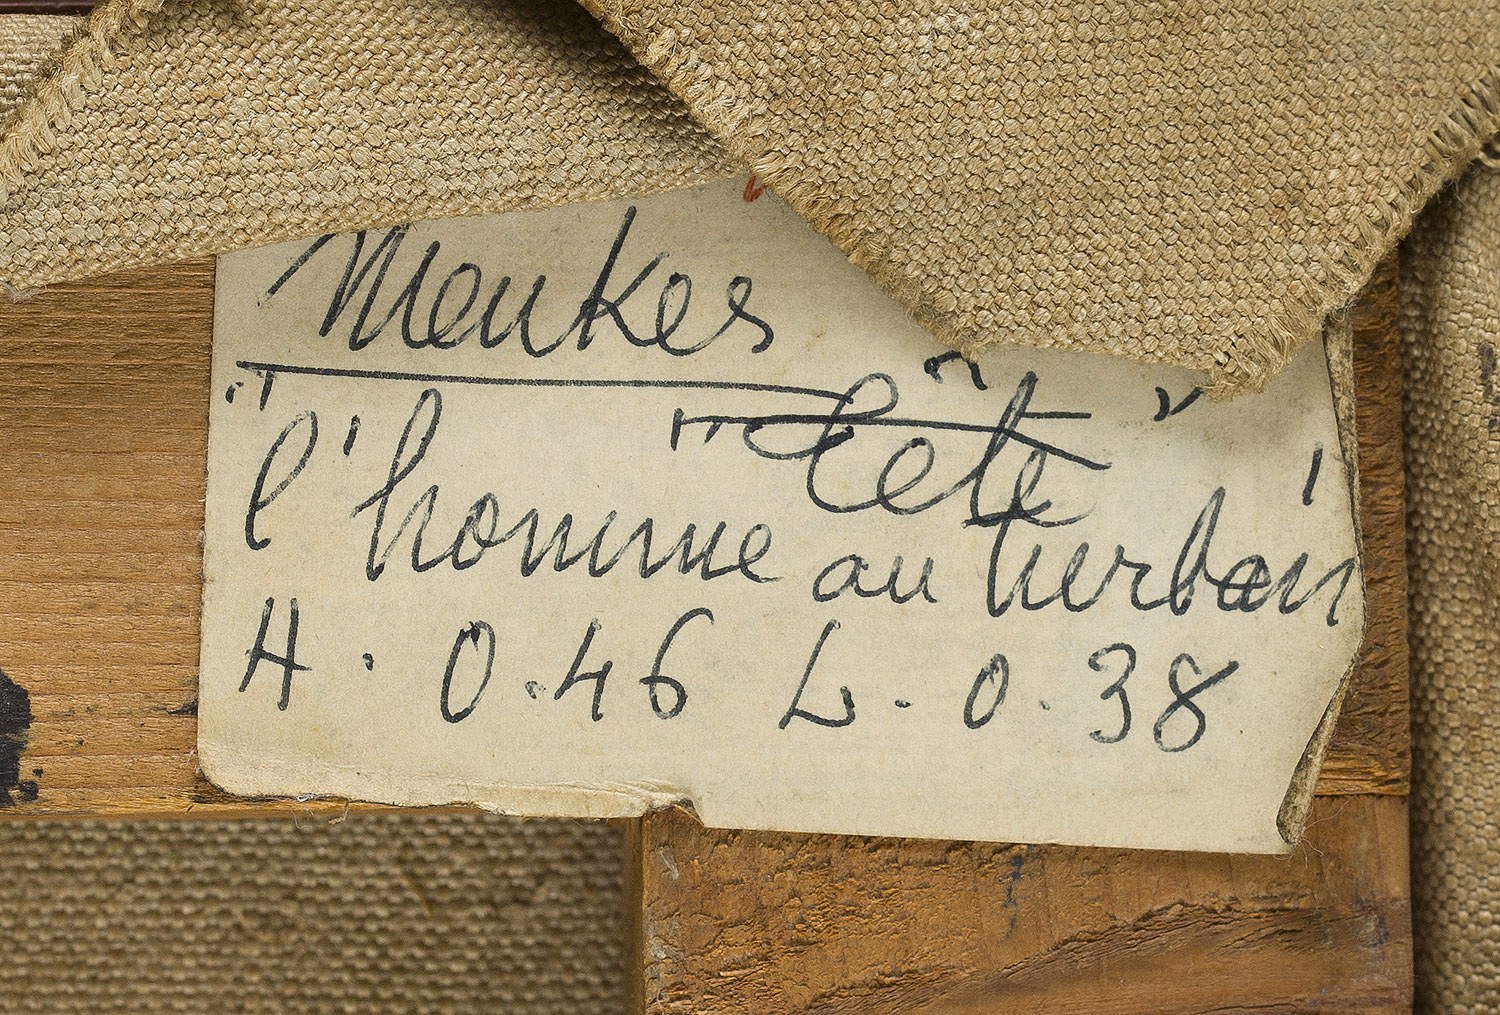 Menkes
" Tête "
"l'homme au turban
H. 0.46 L. 0.38